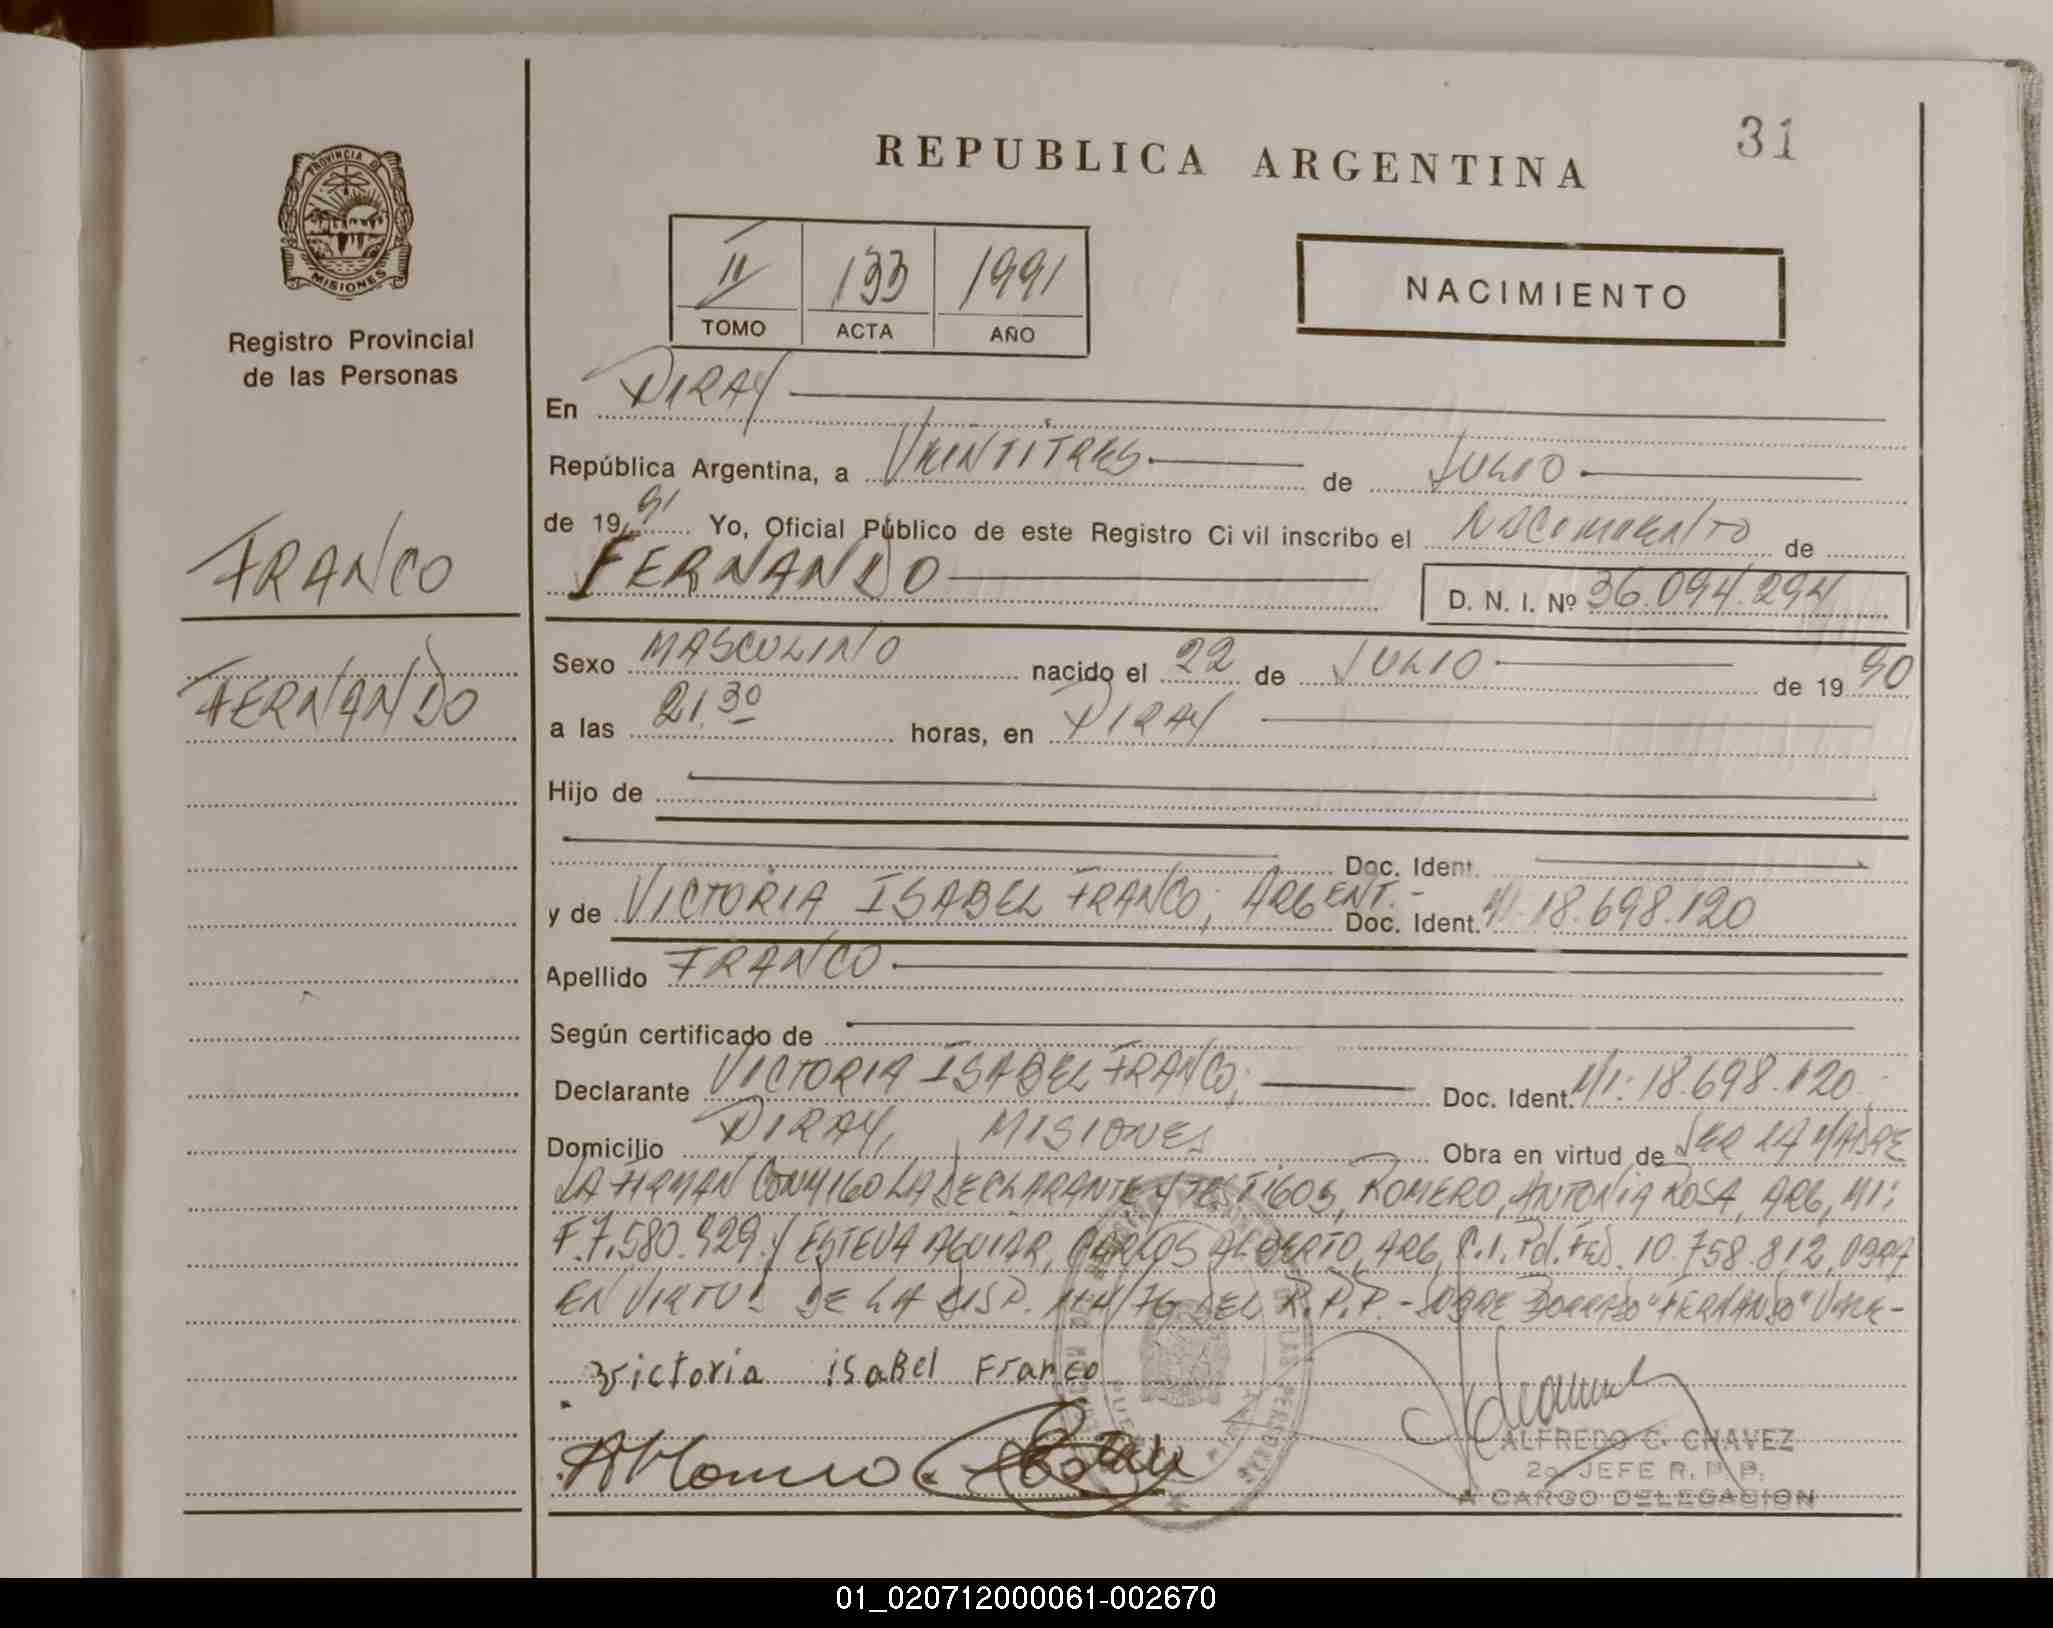 31
REPUBLICA ARGENTINA
PROVINCIA D
MISIONES
Registro Provincial
de las Personas
II 133 1991
TOMO ACTA AÑO
NACIMIENTO
En PIRAY
República Argentina, a VEINTITRES de JULIO
de 19 91 Yo, Oficial Público de este Registro Civil inscribo el NACIMIENTO de
FRANCO
FERNANDO D. N. I. Nº 36.094.294
FERNANDO
Sexo MASCULINO nacido el 22 de JULIO de 19 90
a las 21.30 horas, en PIRAY
Hijo de
Doc. Ident.
y de VICTORIA ISABEL FRANCO, ARGENT.- Doc. Ident. MI: 18.698.120
Apellido FRANCO
Según certificado de
Declarante VICTORIA ISABEL FRANCO; Doc. Ident. MI: 18.698.120
Domicilio PIRAY, MISIONES Obra en virtud de SER LA MADRE
LA FIRMAN CONMIGO LA DECLARANTE Y TESTIGOS, ROMERO, ANTONIA ROSA, ARG, MI:
F.7.580.929 Y ESTEVA AGUIAR, CARLOS ALBERTO, ARG, C.I. Pol. FED. 10.758.812,
EN VIRTUD DE LA DISP. /76 DEL R.P.P.- SOBRE BORRADO "FERNANDO" VALE-
Victoria isaBel Franco
ALFREDO C. CHAVEZ
2o. JEFE R. P. P.
A CARGO DELEGACION
01_020712000061-002670